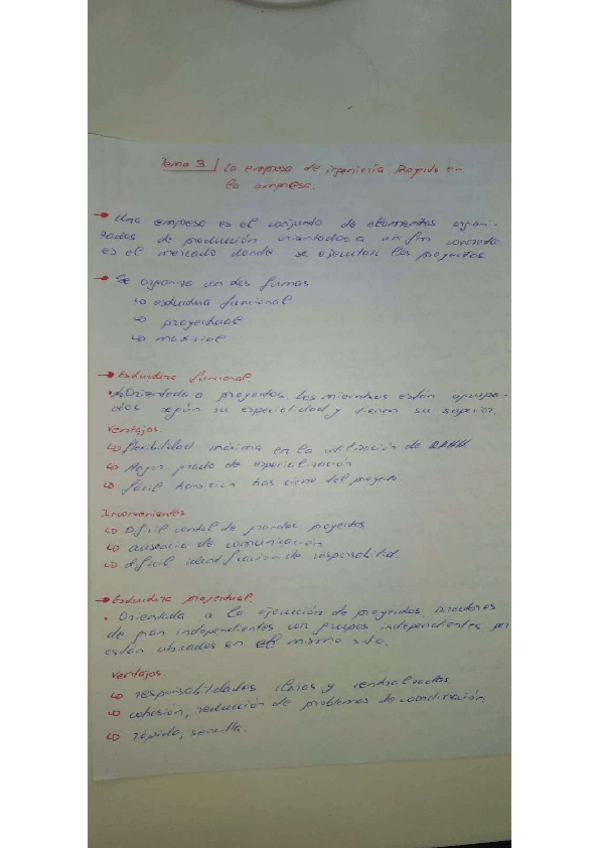 Tema 3 | La empresa de ingeniería. en
la empresa.
→ Una empresa es el conjunto de elementos organi-
zados de producción orientados a un fin
es el mercado donde se ejecutan los proyectos
→ Se organiza con las formas
↳ estructura funcional
↳ proyectual
↳ matricial
→ Estructura funcional
• Orientada a proyectos. Los miembros están agrupa-
dos según su especialidad y tienen su superior.
Ventajas
↳ flexibilidad máxima en la utilización de RRHH
↳ Mayor grado de especialización
↳ fácil transición tras cierre del proyecto
Inconvenientes
↳ Dificil control de grandes proyectos
↳ ausencia de comunicación
↳ dificil identificación de responsabilidad.
→ Estructura proyectual.
• Orientada a la ejecución de proyectos. Directores
de gran independientes con grupos independientes,
están ubicados en el mismo sitio.
Ventajas.
↳ responsabilidades claras y centralizadas
↳ cohesión, reducción de problemas de coordinación
↳ rápida, sencilla.